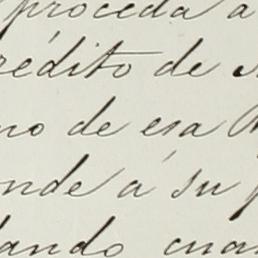 proceda a
rédito de
no de esa
nde á su
dando cua